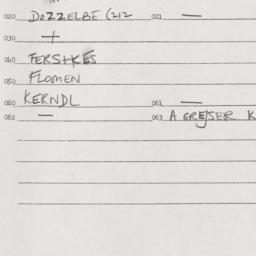 020 DOZZELBE (212 021 —
030 +
040 FERSTKES
050 FLOMEN
060 KERNDL 061 —
062 — 063 A GREJSER K